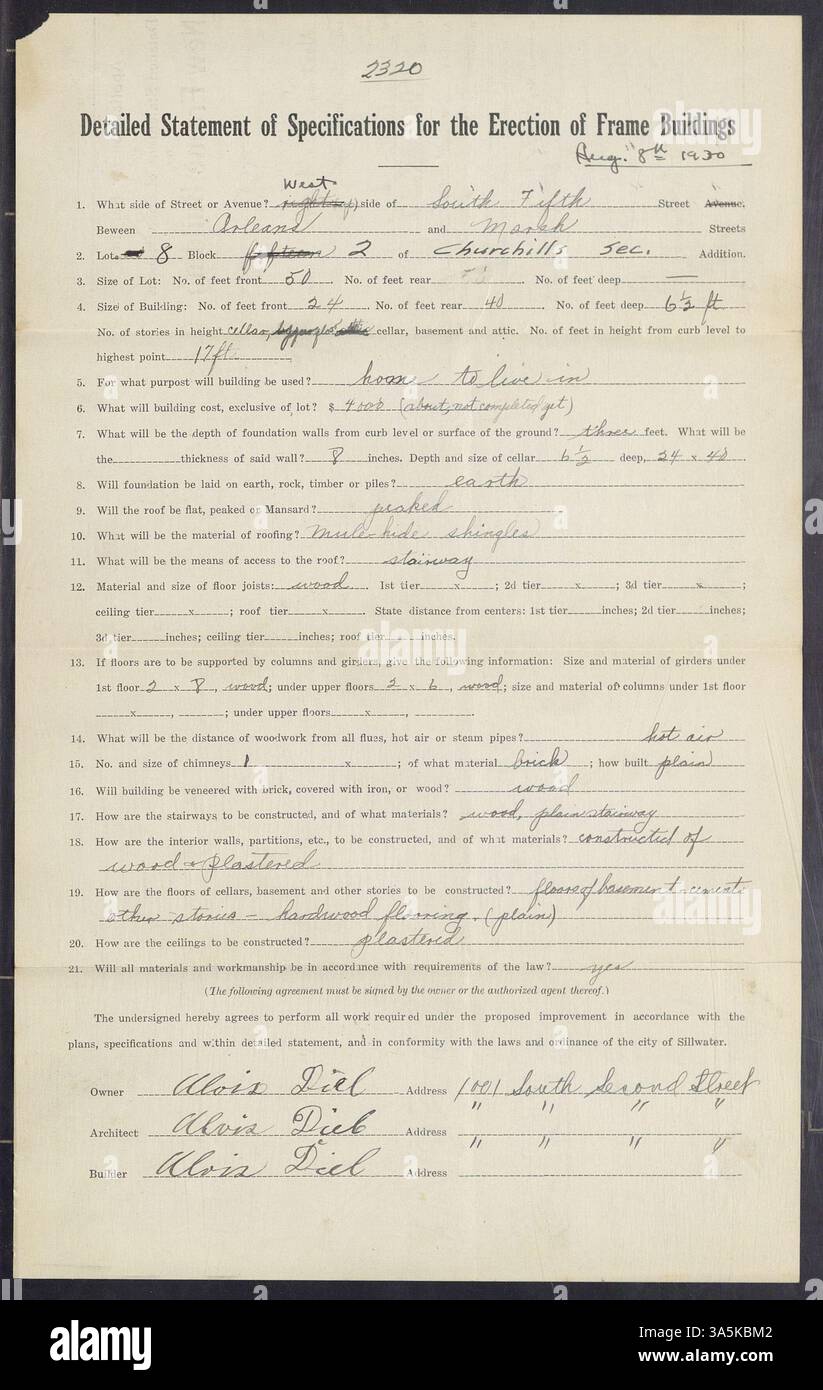 2320
Detailed Statement of Specifications for the Erection of Frame Buildings
Aug. 8th 1930
West
1. What side of Street or Avenue? side of South Fifth Street Avenue.
Beween Orleans and Marsh Streets
2. Lot 8 Block fifteen 2 of Churchills Sec. Addition.
3. Size of Lot: No. of feet front 50. No. of feet rear No. of feet deep —
4. Size of Building: No. of feet front 24. No. of feet rear 40. No. of feet deep 6½ ft
No. of stories in height cellar, cellar, basement and attic. No. of feet in height from curb level to
highest point 17 ft.
5. For what purpost will building be used? home to live in
6. What will building cost, exclusive of lot? $ 4000 (about, not completed yet)
7. What will be the depth of foundation walls from curb level or surface of the ground? three feet. What will be
the thickness of said wall? 8 inches. Depth and size of cellar 6½ deep, 24 x 40.
8. Will foundation be laid on earth, rock, timber or piles? earth
9. Will the roof be flat, peaked or Mansard? peaked
10. What will be the material of roofing? mule-hide shingles
11. What will be the means of access to the roof? stairway
12. Material and size of floor joists: wood. 1st tier x ; 2d tier x ; 3d tier x ;
ceiling tier x ; roof tier x . State distance from centers: 1st tier inches; 2d tier inches;
3d tier inches; ceiling tier inches; roof tier inches.
13. If floors are to be supported by columns and girders, give the following information: Size and material of girders under
1st floor 2 x 8, wood; under upper floors 2 x 6, wood; size and material of columns under 1st floor
x , ; under upper floors x , .
14. What will be the distance of woodwork from all flues, hot air or steam pipes? hot air
15. No. and size of chimneys 1 x ; of what material brick ; how built plain
16. Will building be veneered with brick, covered with iron, or wood? wood
17. How are the stairways to be constructed, and of what materials? wood, plain stairway
18. How are the interior walls, partitions, etc., to be constructed, and of what materials? constructed of
wood & plastered
19. How are the floors of cellars, basement and other stories to be constructed? floors of basement cement
other stories — hardwood flooring. (plain)
20. How are the ceilings to be constructed? plastered
21. Will all materials and workmanship be in accordance with requirements of the law? yes
(The following agreement must be signed by the owner or the authorized agent thereof.)
The undersigned hereby agrees to perform all work required under the proposed improvement in accordance with the
plans, specifications and within detailed statement, and in conformity with the laws and ordinance of the city of Sillwater.
Owner Alvis Diel Address 1001 South Second Street
Architect Alvis Diel Address " " " "
Builder Alvis Diel Address " " " "
alamy
Image ID: 3A5KBM2
www.alamy.com